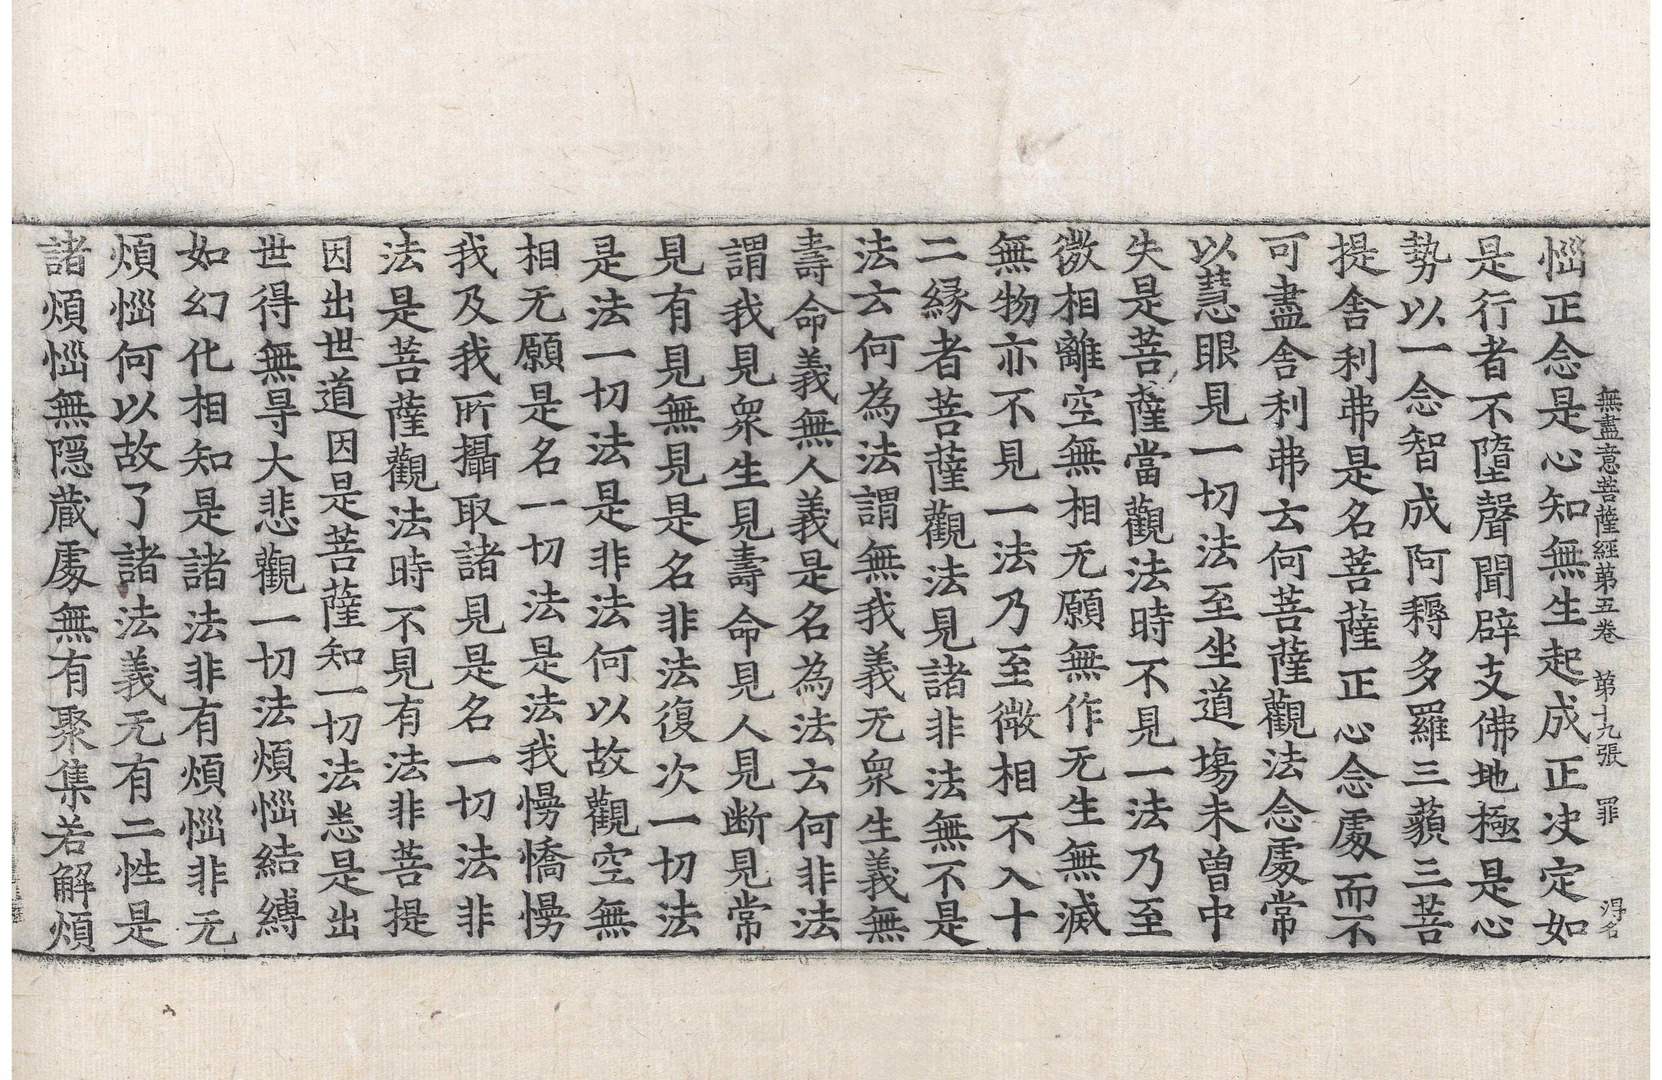 無盡意菩薩經第五卷　第十九張　罪　得名
惱正念是心知無生起成正决定如
是行者不墮聲聞辟支佛地極是心
勢以一念智成阿耨多羅三藐三菩
提舍利弗是名菩薩正心念處而不
可盡舍利弗云何菩薩觀法念處常
以慧眼見一切法至坐道場未曾中
失是菩薩當觀法時不見一法乃至
微相離空無相无願無作无生無滅
無物亦不見一法乃至微相不入十
二緣者菩薩觀法見諸非法無不是
法云何為法謂無我義无衆生義無
壽命義無人義是名為法云何非法
謂我見衆生見壽命見人見断見常
見有見無見是名非法復次一切法
是法一切法是非法何以故觀空無
相无願是名一切法是法我慢憍慢
我及我所攝取諸見是名一切法非
法是菩薩觀法時不見有法非菩提
因出世道因是菩薩知一切法悉是出
世得無㝵大悲觀一切法煩惱結縛
如幻化相知是諸法非有煩惱非无
煩惱何以故了諸法義无有二性是
諸煩惱無隱藏處無有聚集若解煩